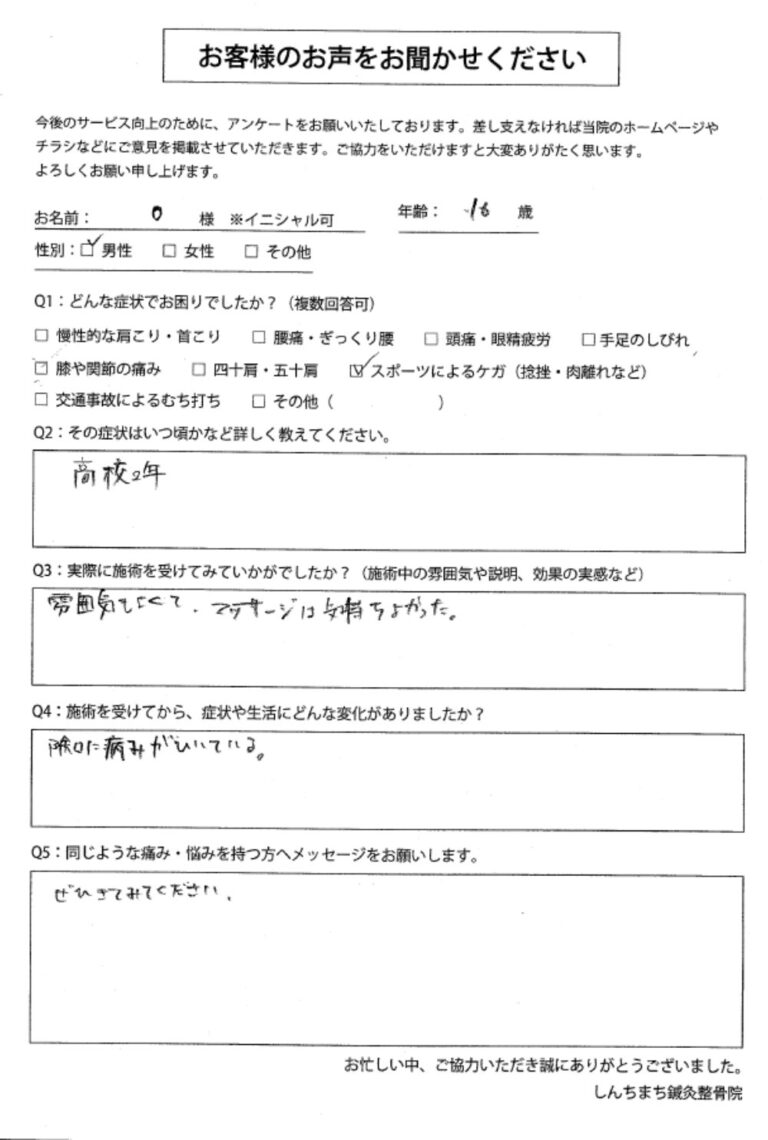 お客様のお声をお聞かせください
今後のサービス向上のために、アンケートをお願いいたしております。差し支えなければ当院のホームページや
チラシなどにご意見を掲載させていただきます。ご協力をいただけますと大変ありがたく思います。
よろしくお願い申し上げます。
お名前： O 様 ※イニシャル可 年齢： 16 歳
性別：☑男性 □ 女性 □ その他
Q1：どんな症状でお困りでしたか？（複数回答可）
□ 慢性的な肩こり・首こり □ 腰痛・ぎっくり腰 □ 頭痛・眼精疲労 □手足のしびれ
□ 膝や関節の痛み □ 四十肩・五十肩 ☑スポーツによるケガ（捻挫・肉離れなど）
□ 交通事故によるむち打ち □ その他（ ）
Q2：その症状はいつ頃かなど詳しく教えてください。
高校2年
Q3：実際に施術を受けてみていかがでしたか？（施術中の雰囲気や説明、効果の実感など）
雰囲気もよくて、マッサージは気持ちよかった。
Q4：施術を受けてから、症状や生活にどんな変化がありましたか？
に痛みがひいている。
Q5：同じような痛み・悩みを持つ方へメッセージをお願いします。
ぜひきてみてください。
お忙しい中、ご協力いただき誠にありがとうございました。
しんちまち鍼灸整骨院